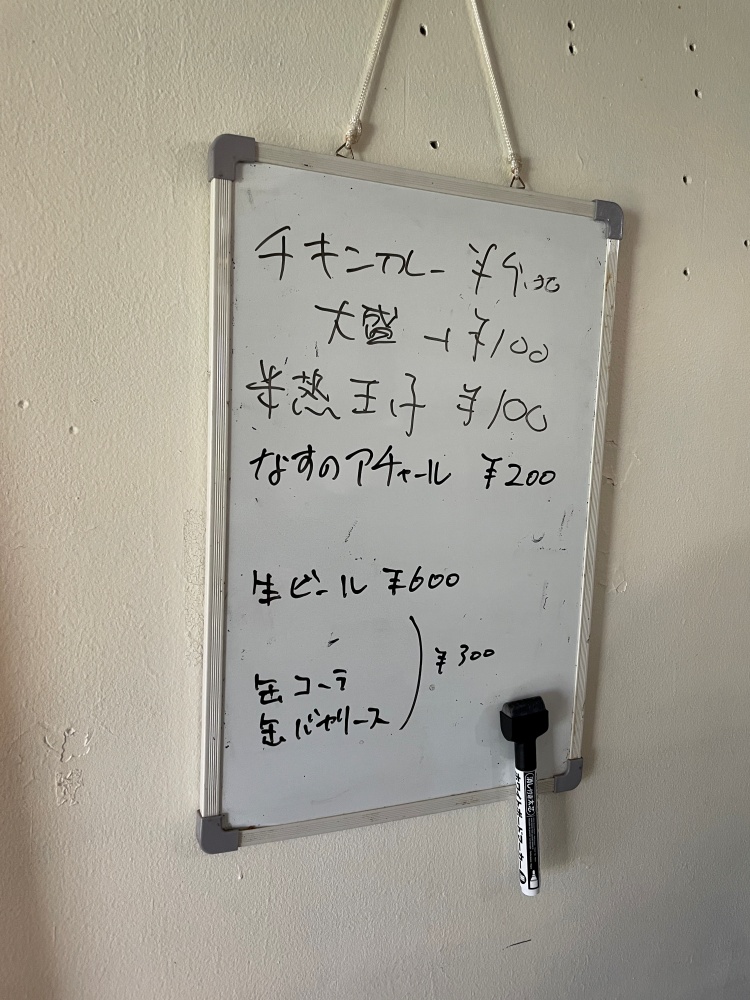 チキンカレー
大盛 +¥100
半熟玉子 ¥100
なすのアチャール ¥200
生ビール ¥600
缶コーラ
缶バヤリース
¥300
ホワイトボードマーカー